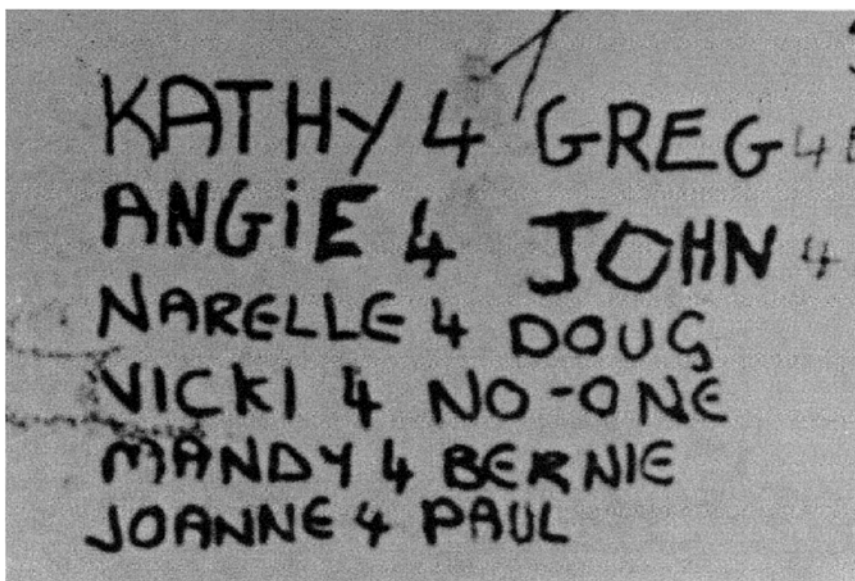 KATHY 4 GREG 4
ANGiE 4 JOHN 4
NARELLE 4 DOUG
VICKI 4 NO-ONE
MANDY 4 BERNIE
JOANNE 4 PAUL